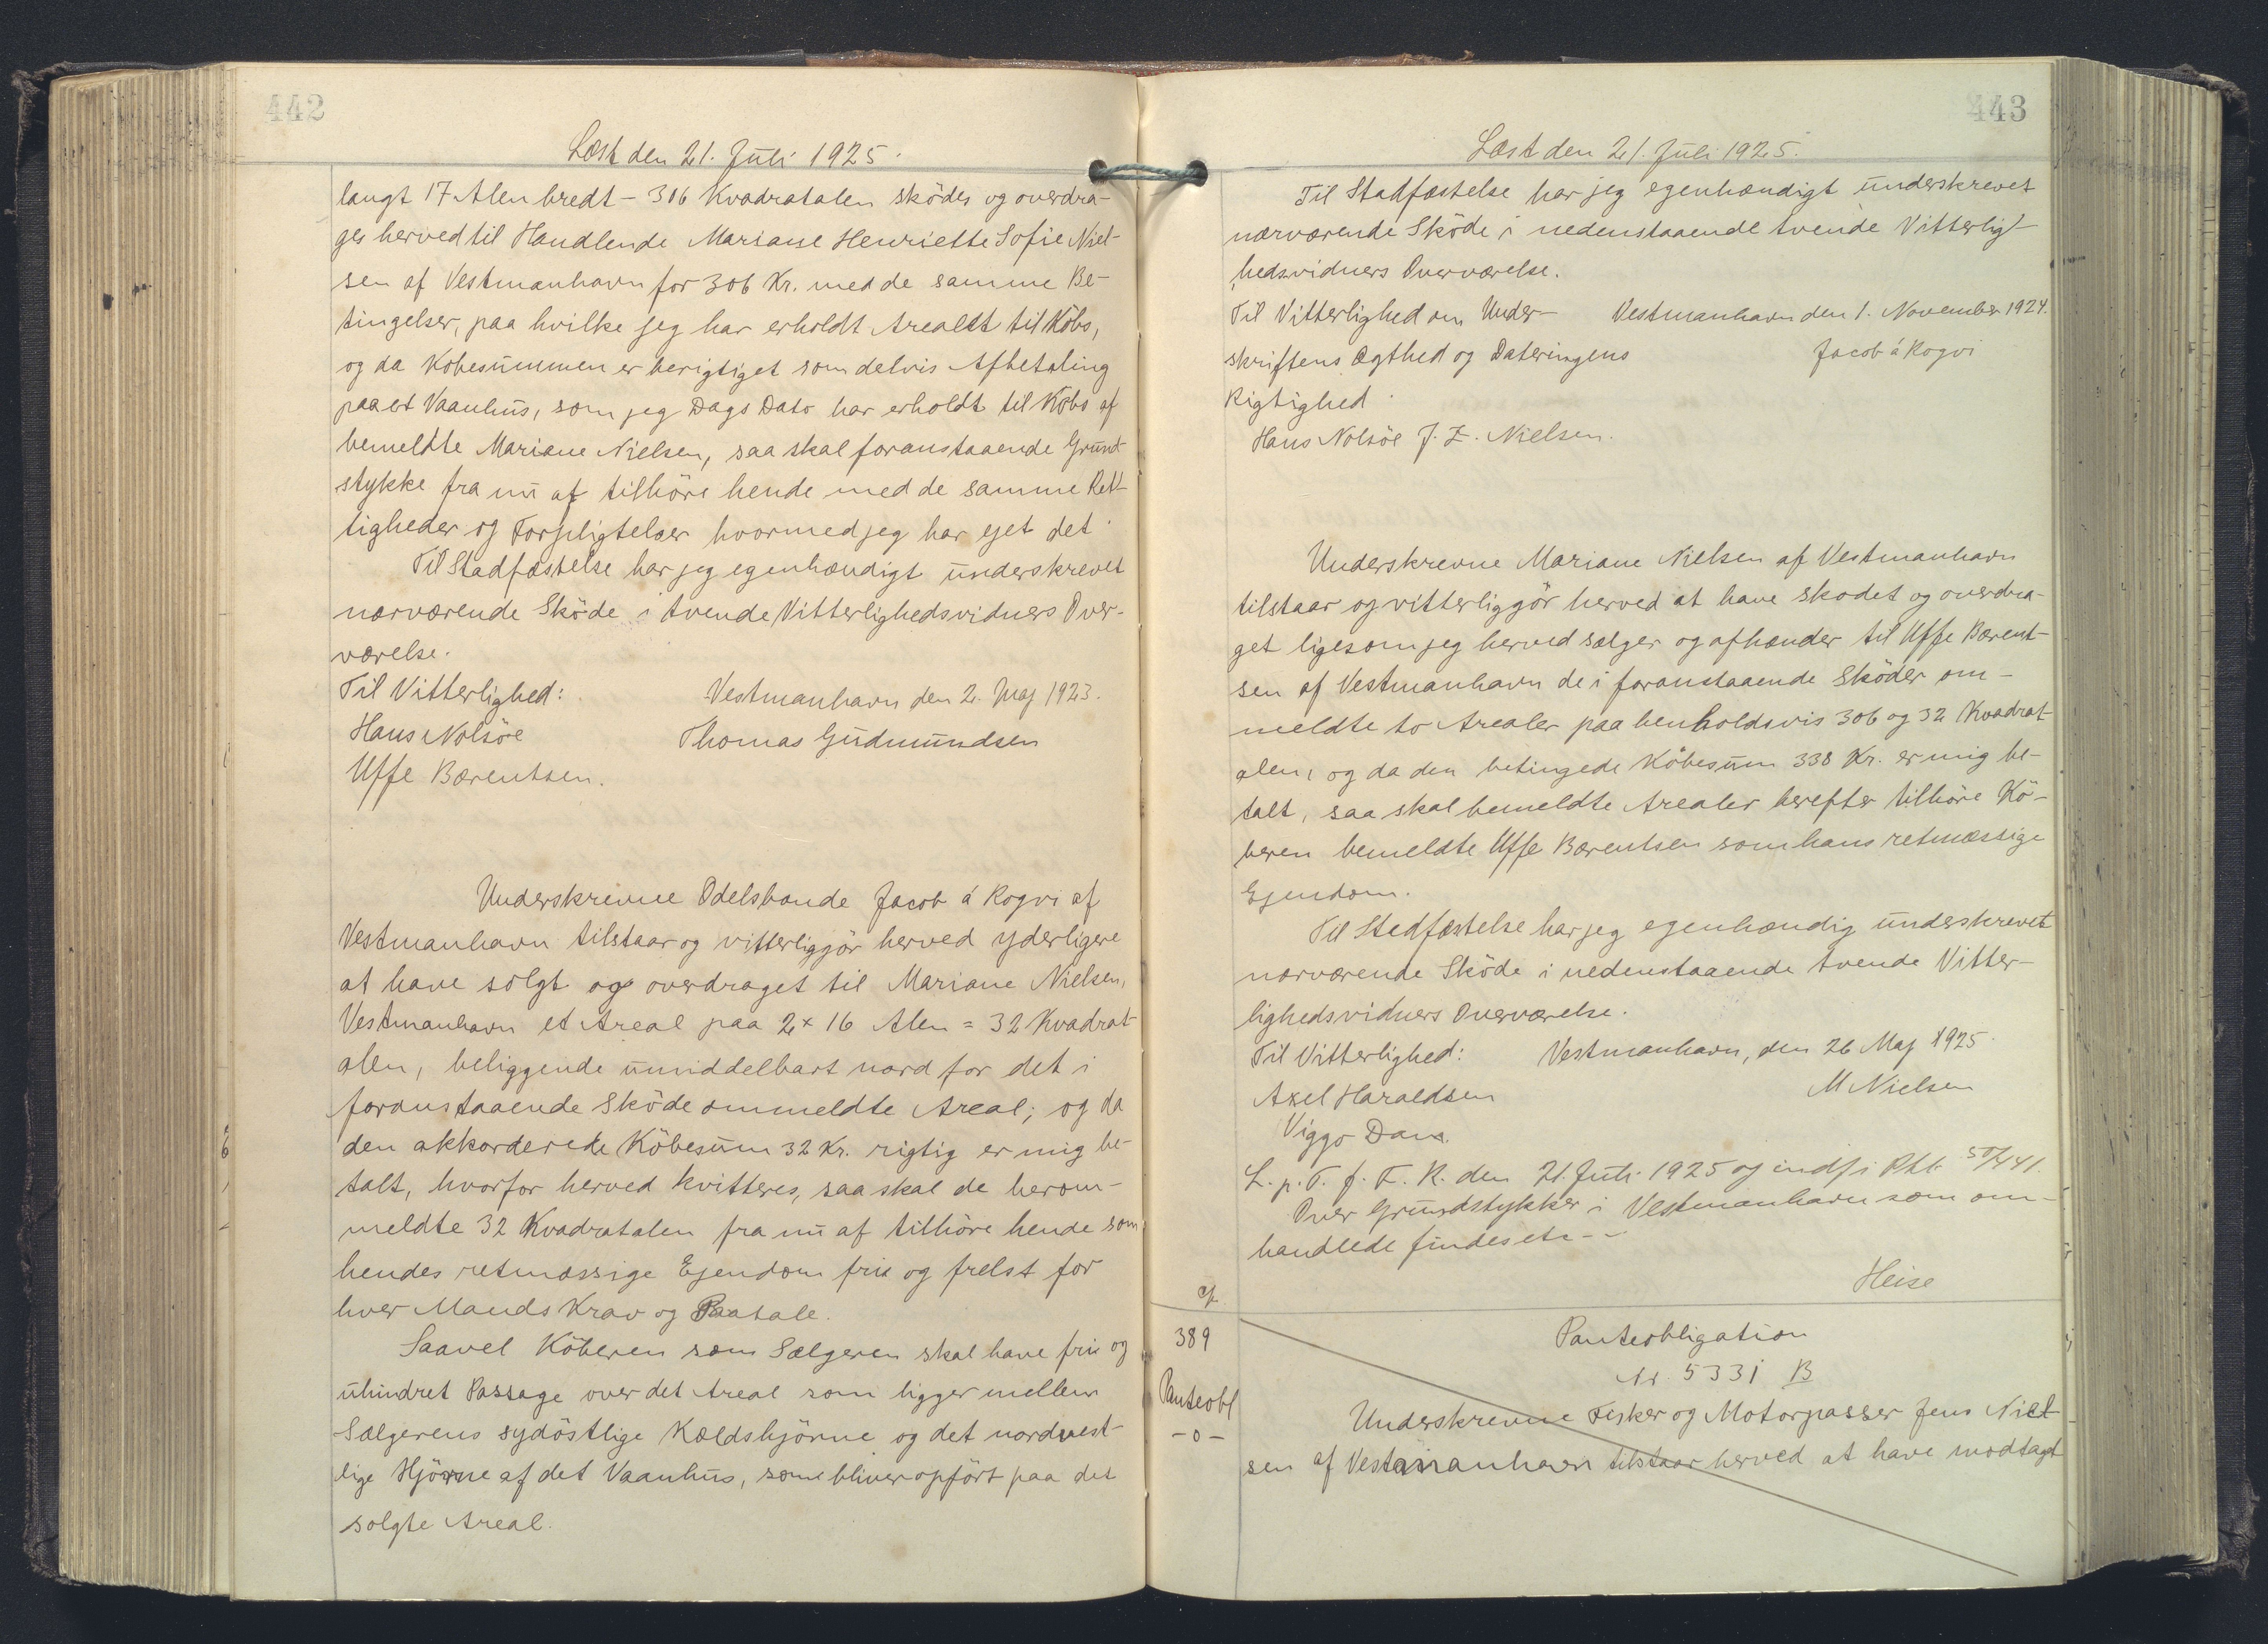 442
Læst den 21. Juli 1925.
langt 17 Alen bredt - 306 Kvadratalen sködes og overdra-
ges herved til Handlende Mariane Henriette Sofie Niel-
sen af Vestmanhavn for 306 Kr. med de samme Be-
tingelser, paa hvilke jeg har erholdt Arealet til Köbs,
og da Kobesummen er berigtiget som delvis Afbetaling
paa et Vaanhus, som jeg Dags Dato har erholdt til Köbs af
bemeldte Mariane Nielsen, saa skal foranstaaende Grund
stykke fra nu af tilhöre hende med de samme Ret-
tigheder og Forpligtelser hvormed jeg har ejet det.
Til Stadfæstelse har jeg egenhændigt underskrevet
nærværende Sköde i tvende Vitterlighedsvidners Over-
værelse.
Til Vitterlighed: Vestmanhavn den 2. Maj 1923.
Hans Nolsöe Thomas Gudmundsen
Uffe Bærentsen.
Underskrevne Odelsbonde Jacob á Rogvi af
Vestmanhavn tilstaar og vitterliggjör herved yderligere
at have solgt og overdraget til Mariane Nielsen,
Vestmanhavn et Areal paa 2 x 16 Alen = 32 Kvadrat
alen, beliggende umiddelbart nord for det i
foranstaaende Sköde ommeldte Areal; og da
den akkorderede Köbesum 32 Kr. rigtig er mig be-
talt, hvorfor herved kvitteres, saa skal de herom-
meldte 32 Kvadratalen fra nu af tilhöre hende som
hendes retmæssige Ejendom frii og frelst for
hver Mands Krav og Paatale.
Saavel Köberen som Sælgeren skal have frii og
uhindret Passage over det Areal som ligger mellem
Sælgerens sydöstlige Kældshjörne og det nordvest-
lige Hjörne af det Vaanhus, som bliver opfört paa det
solgte Areal.
443
Læst den 21. Juli 1925.
Til Stadfæstelse har jeg egenhændigt underskrevet
nærværende Sköde i nedenstaaende tvende Vitterlig-
hedsvidners Overværelse.
Til Vitterlighed om Under- Vestmanhavn den 1. November 1924.
skriftens Ægthed og Dateringens Jacob á Rogvi
Rigtighed
Hans Nolsöe J. Z. Nielsen.
Underskrevne Mariane Nielsen af Vestmanhavn
tilstaar og vitterliggör herved at have skodet og overdra-
get ligesom jeg herved sælger og afhænder til Uffe Bærent-
sen af Vestmanhavn de i foranstaaende Sköder om-
meldte to Arealer paa henholdsvis 306 og 32 Kvadrat-
alen, og da den betingede Köbesum 338 Kr. er mig be-
talt, saa skal bemeldte Arealer herefter tilhöre Kö-
beren bemeldte Uffe Bærentsen som hans retmæssige
Ejendom.
Til Stedfæstelse har jeg egenhændig underskrevet
nærværende Sköde i nedenstaaende tvende Vitter-
lighedsvidners Overværelse.
Til Vitterlighed: Vestmanhavn, den 26 Maj 1925.
Axel Haraldsen M Nielsen
Viggo Dam.
L. p. T. f. F. R. den 21. Juli 1925 og indf i Pkt. 50/441.
Over Grundstykker i Vestmanhavn som om-
handlede findes etc --
Heise
389
Panteobl
-o-
Panteobligation
Nr. 5331 B
Underskrevne Fisker og Motorpasser Jens Niel-
sen af Vestmanhavn tilstaar herved at have modtaget